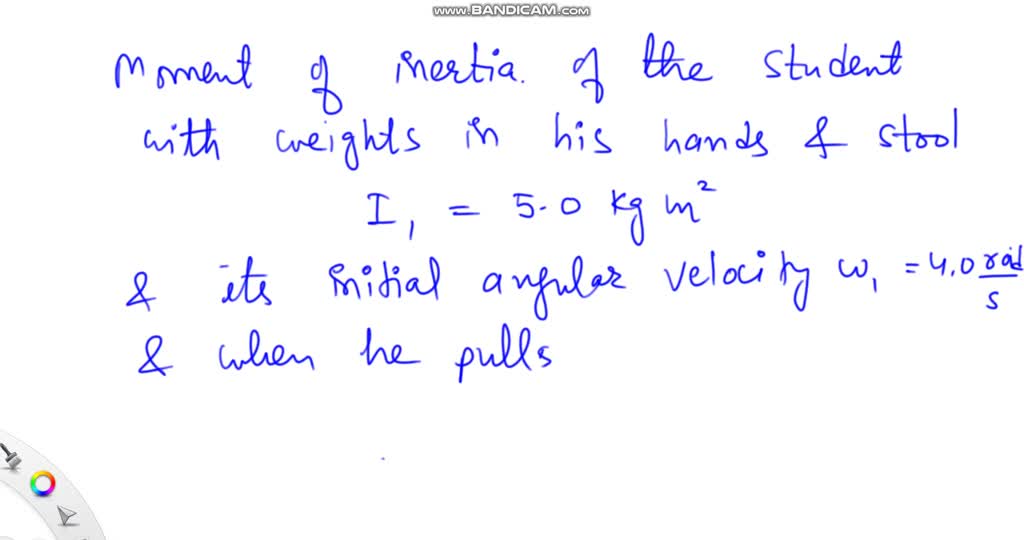 www.BANDICAM.com
Moment of inertia. of the student
with weights in his hands & stool
I₁ = 5.0 kg m²
& its initial angular velocity ω₁ = 4.0 rad/s
& when he pulls